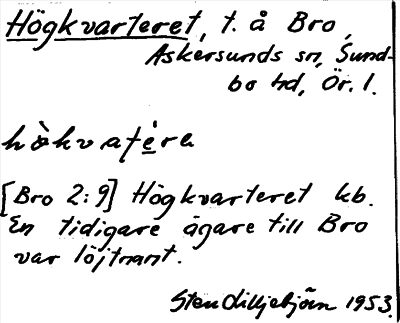 Högkvarteret, t. å Bro,
Askersunds sn, Sund-
bo hd, Ör. l.
hò̀kvatéra
[Bro 2:9] Högkvarteret kb.
En tidigare ägare till Bro
var löjtnant.
Sten Lilljebjörn 1953.